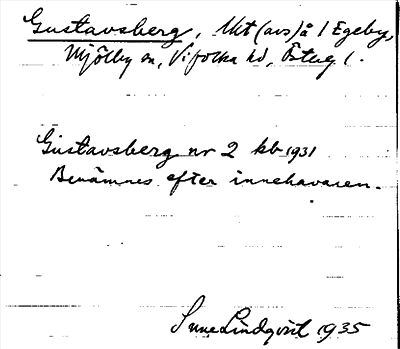 Gustavsberg, lht (avs) å 1 Egeby,
Mjölby sn, Vifolka hd, Österg l.
Gustavsberg nr 2 kb 1931
Benämnes efter innehavaren.
Sune Lindqvist 1935